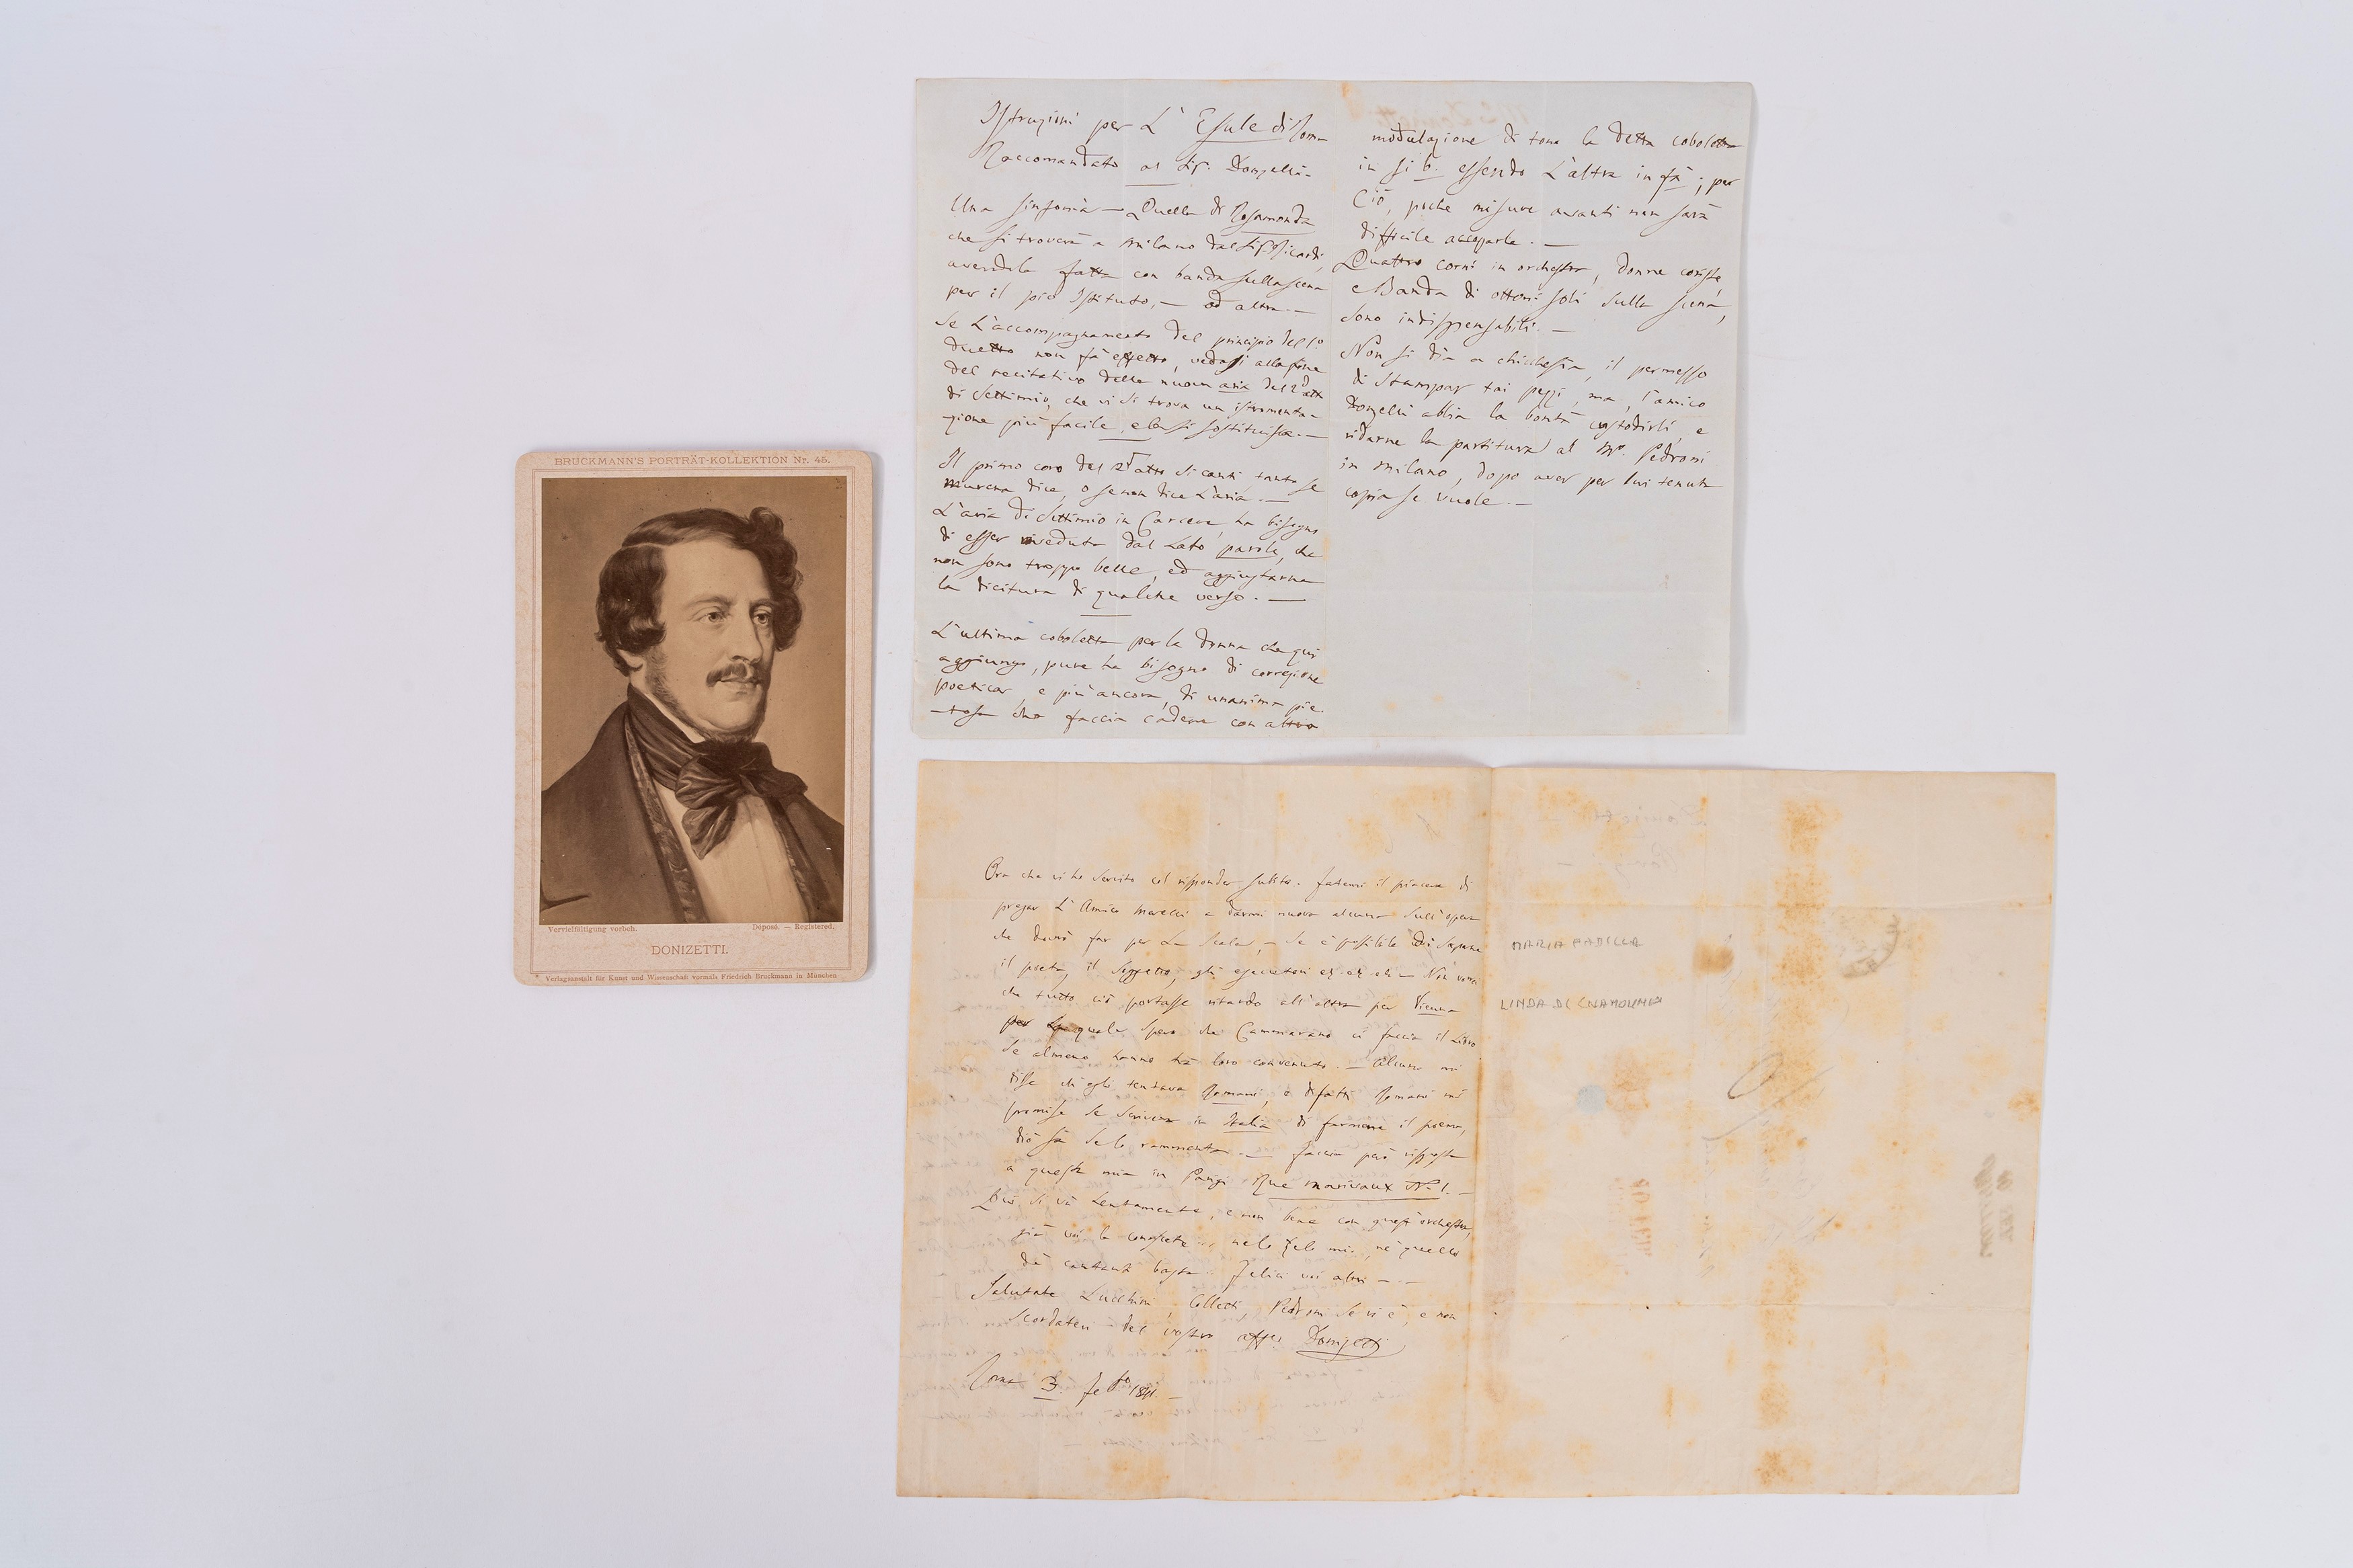 BRUCKMANN'S PORTRÄT-KOLLEKTION Nr. 45.
Vervielfältigung vorbeh. Déposé. — Registered.
DONIZETTI.
Verlagsanstalt für Kunst und Wissenschaft vormals Friedrich Bruckmann in München
Istruzioni per L'Esule di Roma
Raccomandato al Sig. Donzelli-
Una sinfonia — Quella di Rosmonda
che si troverà a Milano dal Sig. Ricordi,
avendola fatta con banda sulla scena
per il pio Istituto, — od altra. —
Se L'accompagnamento del principio del 1º
duetto non fà effetto, vedasi alla fine
del recitativo della nuova aria del 2º atto
di Settimio, che vi si trova un istromenta-
zione più facile, e la si sostituisca. —
Il primo coro del 2º atto si canti, tanto se
Murena dice, o se non dice L'aria. —
L'aria di Settimio in Carcere, ha bisogno
di esser riveduta dal Lato parole, che
non sono troppo belle, ed aggiustarne
la dicitura di qualche verso. —
L'ultima cabaletta per la donna che qui
aggiungo, pure ha bisogno di correzione
poetica, e più ancora, di un anima pie-
-tosa che faccia cadere con altra
modulazione di tono la detta cabaletta
in si b. essendo L'altra in fà; per
Ciò, poche misure avanti non sarà
difficile accoparla. —
Quattro corni in orchestra, donne coriste,
e Banda di ottoni soli sulla scena,
sono indispensabili. —
Non si dia a chichesia, il permesso
di stampar tai pezzi, ma, l'amico
Donzelli abbia la bontà custodirli, e
ridarne la partitura al Mº. Pedroni
in Milano, dopo aver per lui tenuta
copia se vuole. —
Ora che vi ho servito col risponder subito. fatemi il piacere di
pregar L'Amico Merelli a darmi nuova alcuna sull'opera
che dovrò far per La Scala, — se è possibile di sapere
il poeta, il soggetto, gli esecutori — Non vorrei
che tutto ciò portasse ritardo all'altra per Vienna
per La quale spero che Cammarano ci faccia il Libro
se almeno hanno trà loro convenuto. — Alcuno mi
disse ch'egli tentava Romani, e difatti Romani mi
promise se scrivevo in Italia di farmene il poema,
dio sà se lo rammenta — faccia però risposta
a questa mia in Parigi Rue Marivaux Nº 1. —
Qui si và Lentamente, e non bene con quest'orchestra,
già voi la conoscete ... nè lo zelo mio, nè quello
dè cantanti basta. Felici voi altri — —
Salutate Lucchini, Pedroni se vi è, e non
scordatevi del vostro affº Donizetti
Roma 3. febº 1841. —
MARIA PADILLA
LINDA DI CHAMOUNIX